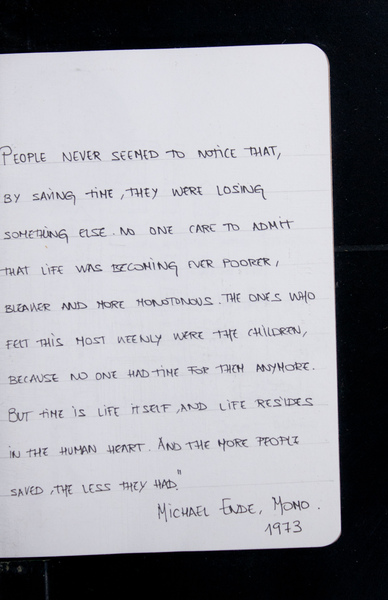 PEOPLE NEVER SEEMED TO NOTICE THAT,
BY SAVING TIME, THEY WERE LOSING
SOMETHING ELSE. NO ONE CARE TO ADMIT
THAT LIFE WAS BECOMING EVER POORER,
BLEAKER AND MORE MONOTONOUS. THE ONES WHO
FELT THIS MOST KEENLY WERE THE CHILDREN,
BECAUSE NO ONE HAD TIME FOR THEM ANYMORE.
BUT TIME IS LIFE ITSELF, AND LIFE RESIDES
IN THE HUMAN HEART. AND THE MORE PEOPLE
SAVED, THE LESS THEY HAD."
MICHAEL ENDE, MOMO.
1973